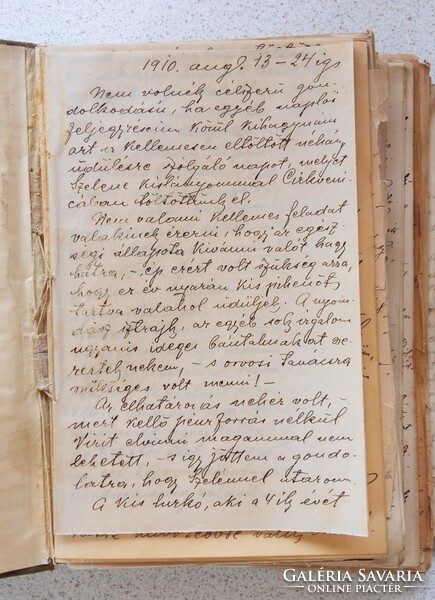 1910. aug. 13–24 ig
Nem volnék célszerű gon-
dolkodású, ha egyéb napló
feljegyzéseim közül kihagynám
azt a kellemesen eltöltött néhány
üdülésre szolgáló napot, melyet
Szelene kislányommal Cirkveni-
cában töltöttünk el.
Nem valami kellemes feladat
valakinek érezni, hogy az egész-
ségi állapota kívánni valót hagy
hátra, – ép ezért volt szükség arra,
hogy ez év nyarán kis pihenőt
tartva valahol üdüljek. A nyom-
dász sztrájk, az egyéb sok izgalom
ugyanis ideges bántalmakat sze-
reztek nekem, – s orvosi tanácsra
szükséges volt menni! –
Az elhatározás nehéz volt, –
mert kellő pénzforrás nélkül
Vicit elvinni magammal nem
lehetett, – s így jöttem a gondo-
latra, hogy Szelénnel utazom.
A kis hurkó, aki a 4 ik évét
GALÉRIA SAVARIA
ONLINE PIACTÉR